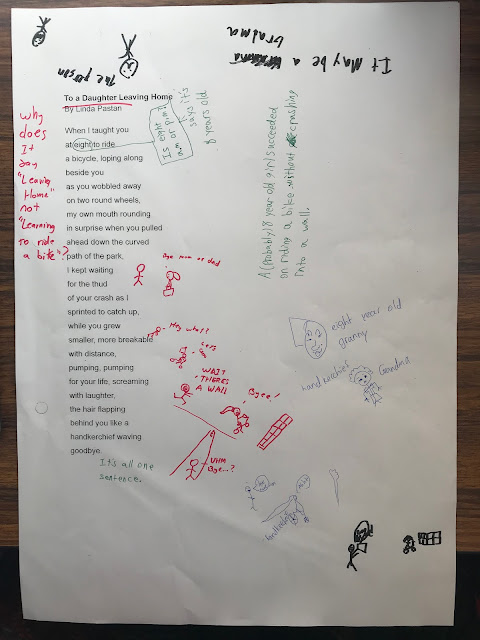 It May be a
To a Daughter Leaving Home
By Linda Pastan
When I taught you
at eight to ride
a bicycle, loping along
beside you
as you wobbled away
on two round wheels,
my own mouth rounding
in surprise when you pulled
ahead down the curved
path of the park,
I kept waiting
for the thud
of your crash as I
sprinted to catch up,
while you grew
smaller, more breakable
with distance,
pumping, pumping
for your life, screaming
with laughter,
the hair flapping
behind you like a
handkerchief waving
goodbye.
It's all one
sentence.
why
does
It
say
"Leaving
Home"
not
"Learning
to ride
a bike"?
Is eight
a.m or p.m?
it's
says
8 years old
A (Probably) 8 year old girl succeeded
on riding a bike without crashing
into a wall.
Bye mom or dad
Hey what?
WAIT
THERES
A WALL
Byee!
UHM
Bye...?
eight year old
granny
handkerchief
Grandma